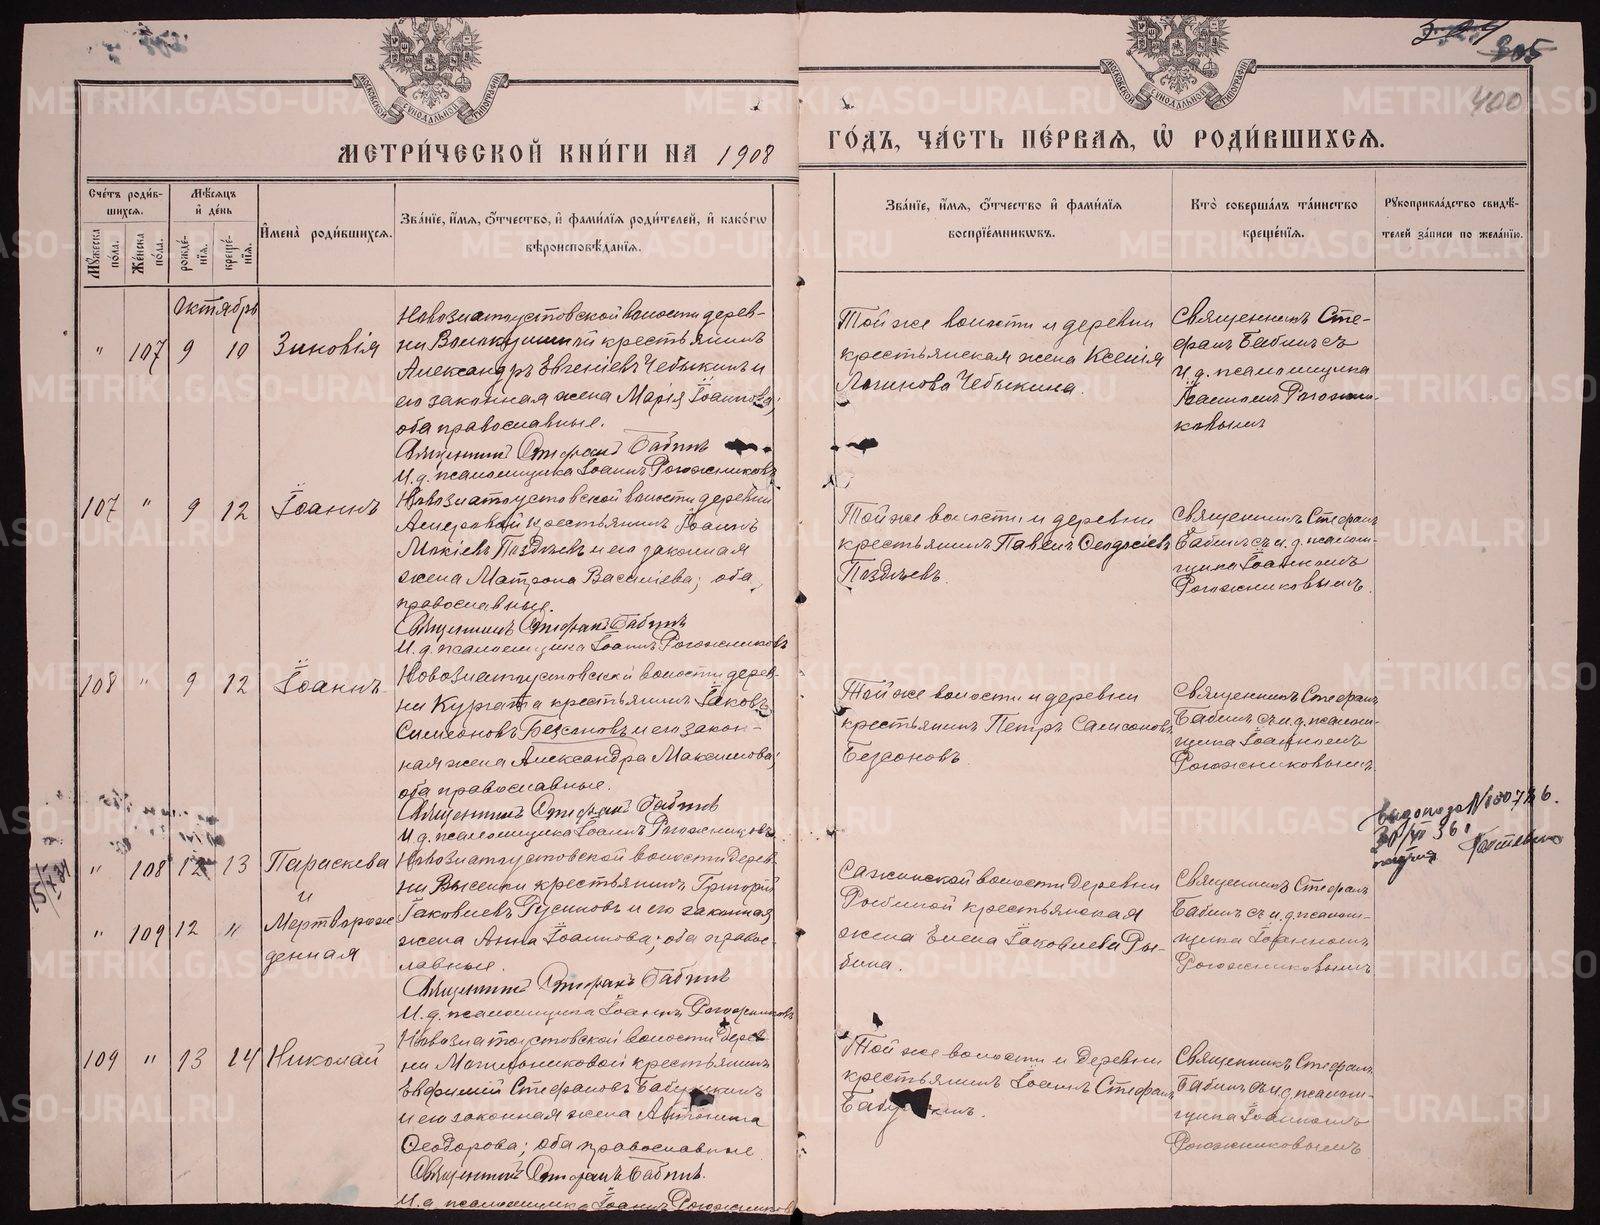 304
305
400
МОСКОВСКОЙ СѴНОДАЛЬНОЙ ТИПОГРАФІИ
МОСКОВСКОЙ СѴНОДАЛЬНОЙ ТИПОГРАФІИ
МЕТРИ́ЧЕСКОЙ КНИ́ГИ НА 1908
ГО́ДЪ, ЧА́СТЬ ПЕ́РВАЯ, Ѡ҆ РОДИ́ВШИХСЯ.
Сче́тъ роди́в-
шихся.
Мꙋ́жеска по́ла.
Же́нска по́ла.
Мѣ́сяцъ
и҆ де́нь
рожде́-
нїя.
креще́-
нїя.
И҆мена̀ роди́вшихся.
Зва́нїе, и҆́мя, ѻ҆́тчество, и҆ фами́лїя роди́телей, и҆ како́гѡ
вѣроисповѣ́данїя.
Зва́нїе, и҆́мя, ѻ҆́тчество и҆ фами́лїя
воспрїе́мниковъ.
Кто̀ соверша́лъ та́инство
креще́нїя.
Рꙋкоприкла́дство свидѣ́-
телей за́писи по жела́нїю.
Октябрь
" 107 9 10 Зиновія
Новозлатоустовской волости дерев-
крестьянинъ
Александръ Евгеніевъ Чебыкинъ и
его законная жена Марія Іоаннова;
оба православные.
Священникъ Стефанъ Бабинъ
И. д. псаломщика Іоаннъ Рогожниковъ
Той же волости и деревни
крестьянская жена Ксенія
Логинова Чебыкина.
Священникъ Сте-
фанъ Бабинъ съ
и. д. псаломщика
Іоанномъ Рогожни-
ковымъ
107 " 9 12 Іоаннъ
Новозлатоустовской волости деревни
крестьянинъ Іоаннъ
Мокіевъ Поздѣевъ и его законная
жена Матрона Василіева; оба
православные.
Священникъ Стефанъ Бабинъ
И. д. псаломщика Іоаннъ Рогожниковъ
Той же волости и деревни
крестьянинъ Павелъ Ѳеодосіевъ
Поздѣевъ.
Священникъ Стефанъ
Бабинъ съ и. д. псалом-
щика Іоанномъ
Рогожниковымъ.
108 " 9 12 Іоаннъ
Новозлатоустовской волости дерев-
ни Кургата крестьянинъ Іаковъ
Симеоновъ Безсоновъ и его закон-
ная жена Александра Максимова;
оба православные.
Священникъ Стефанъ Бабинъ
И. д. псаломщика Іоаннъ Рогожниковъ
Той же волости и деревни
крестьянинъ Петръ Самсоновъ
Безсоновъ.
Священникъ Стефанъ
Бабинъ съ и. д. псалом-
щика Іоанномъ
Рогожниковымъ.
30/VI 36
" 108 12 13 Параскева
и
" 109 12 " Мертворож-
денная
Новозлатоустовской волости дерев-
ни Высенки крестьянинъ Григорій
Іаковлевъ Русиновъ и его законная
жена Анна Іоаннова; оба право-
славные.
Священникъ Стефанъ Бабинъ
И. д. псаломщика Іоаннъ Рогожниковъ
Сажинской волости деревни
Рыбиной крестьянская
жена Елена Іаковлева Ры-
бина.
Священникъ Стефанъ
Бабинъ съ и. д. псалом-
щика Іоанномъ
Рогожниковымъ
109 " 13 14 Николай
Новозлатоустовской волости дерев-
ни крестьянинъ
Евфимій Стефановъ Бабушкинъ
и его законная жена Антонина
Ѳеодорова; оба православные.
Священникъ Стефанъ Бабинъ.
И. д. псаломщика Іоаннъ Рогожниковъ
Той же волости и деревни
крестьянинъ Іоаннъ Стефановъ
Бабушкинъ.
Священникъ Стефанъ
Бабинъ съ и. д. псалом-
щика Іоанномъ
Рогожниковымъ
METRIKI.GASO-URAL.RU